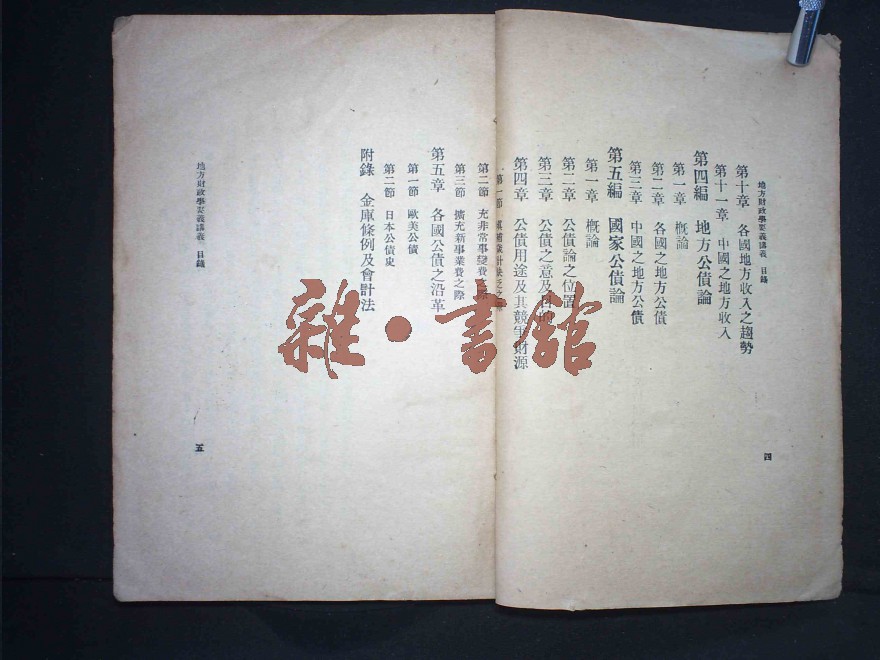 地方財政學要義講義　目錄
第十章　各國地方收入之趨勢
第十一章　中國之地方收入
第四編　地方公債論
第一章　概論
第二章　各國之地方公債
第三章　中國之地方公債
第五編　國家公債論
第一章　概論
第二章　公債論之位置
第三章　公債之意及
第四章　公債用途及其競爭財源
四
第一節　歲計缺乏之
第二節　充非常事變費之際
第三節　擴充新事業費之際
第五章　各國公債之沿革
第一節　歐美公債
第二節　日本公債史
附錄　金庫條例及會計法
地方財政學要義講義　目錄
五
雜·書館